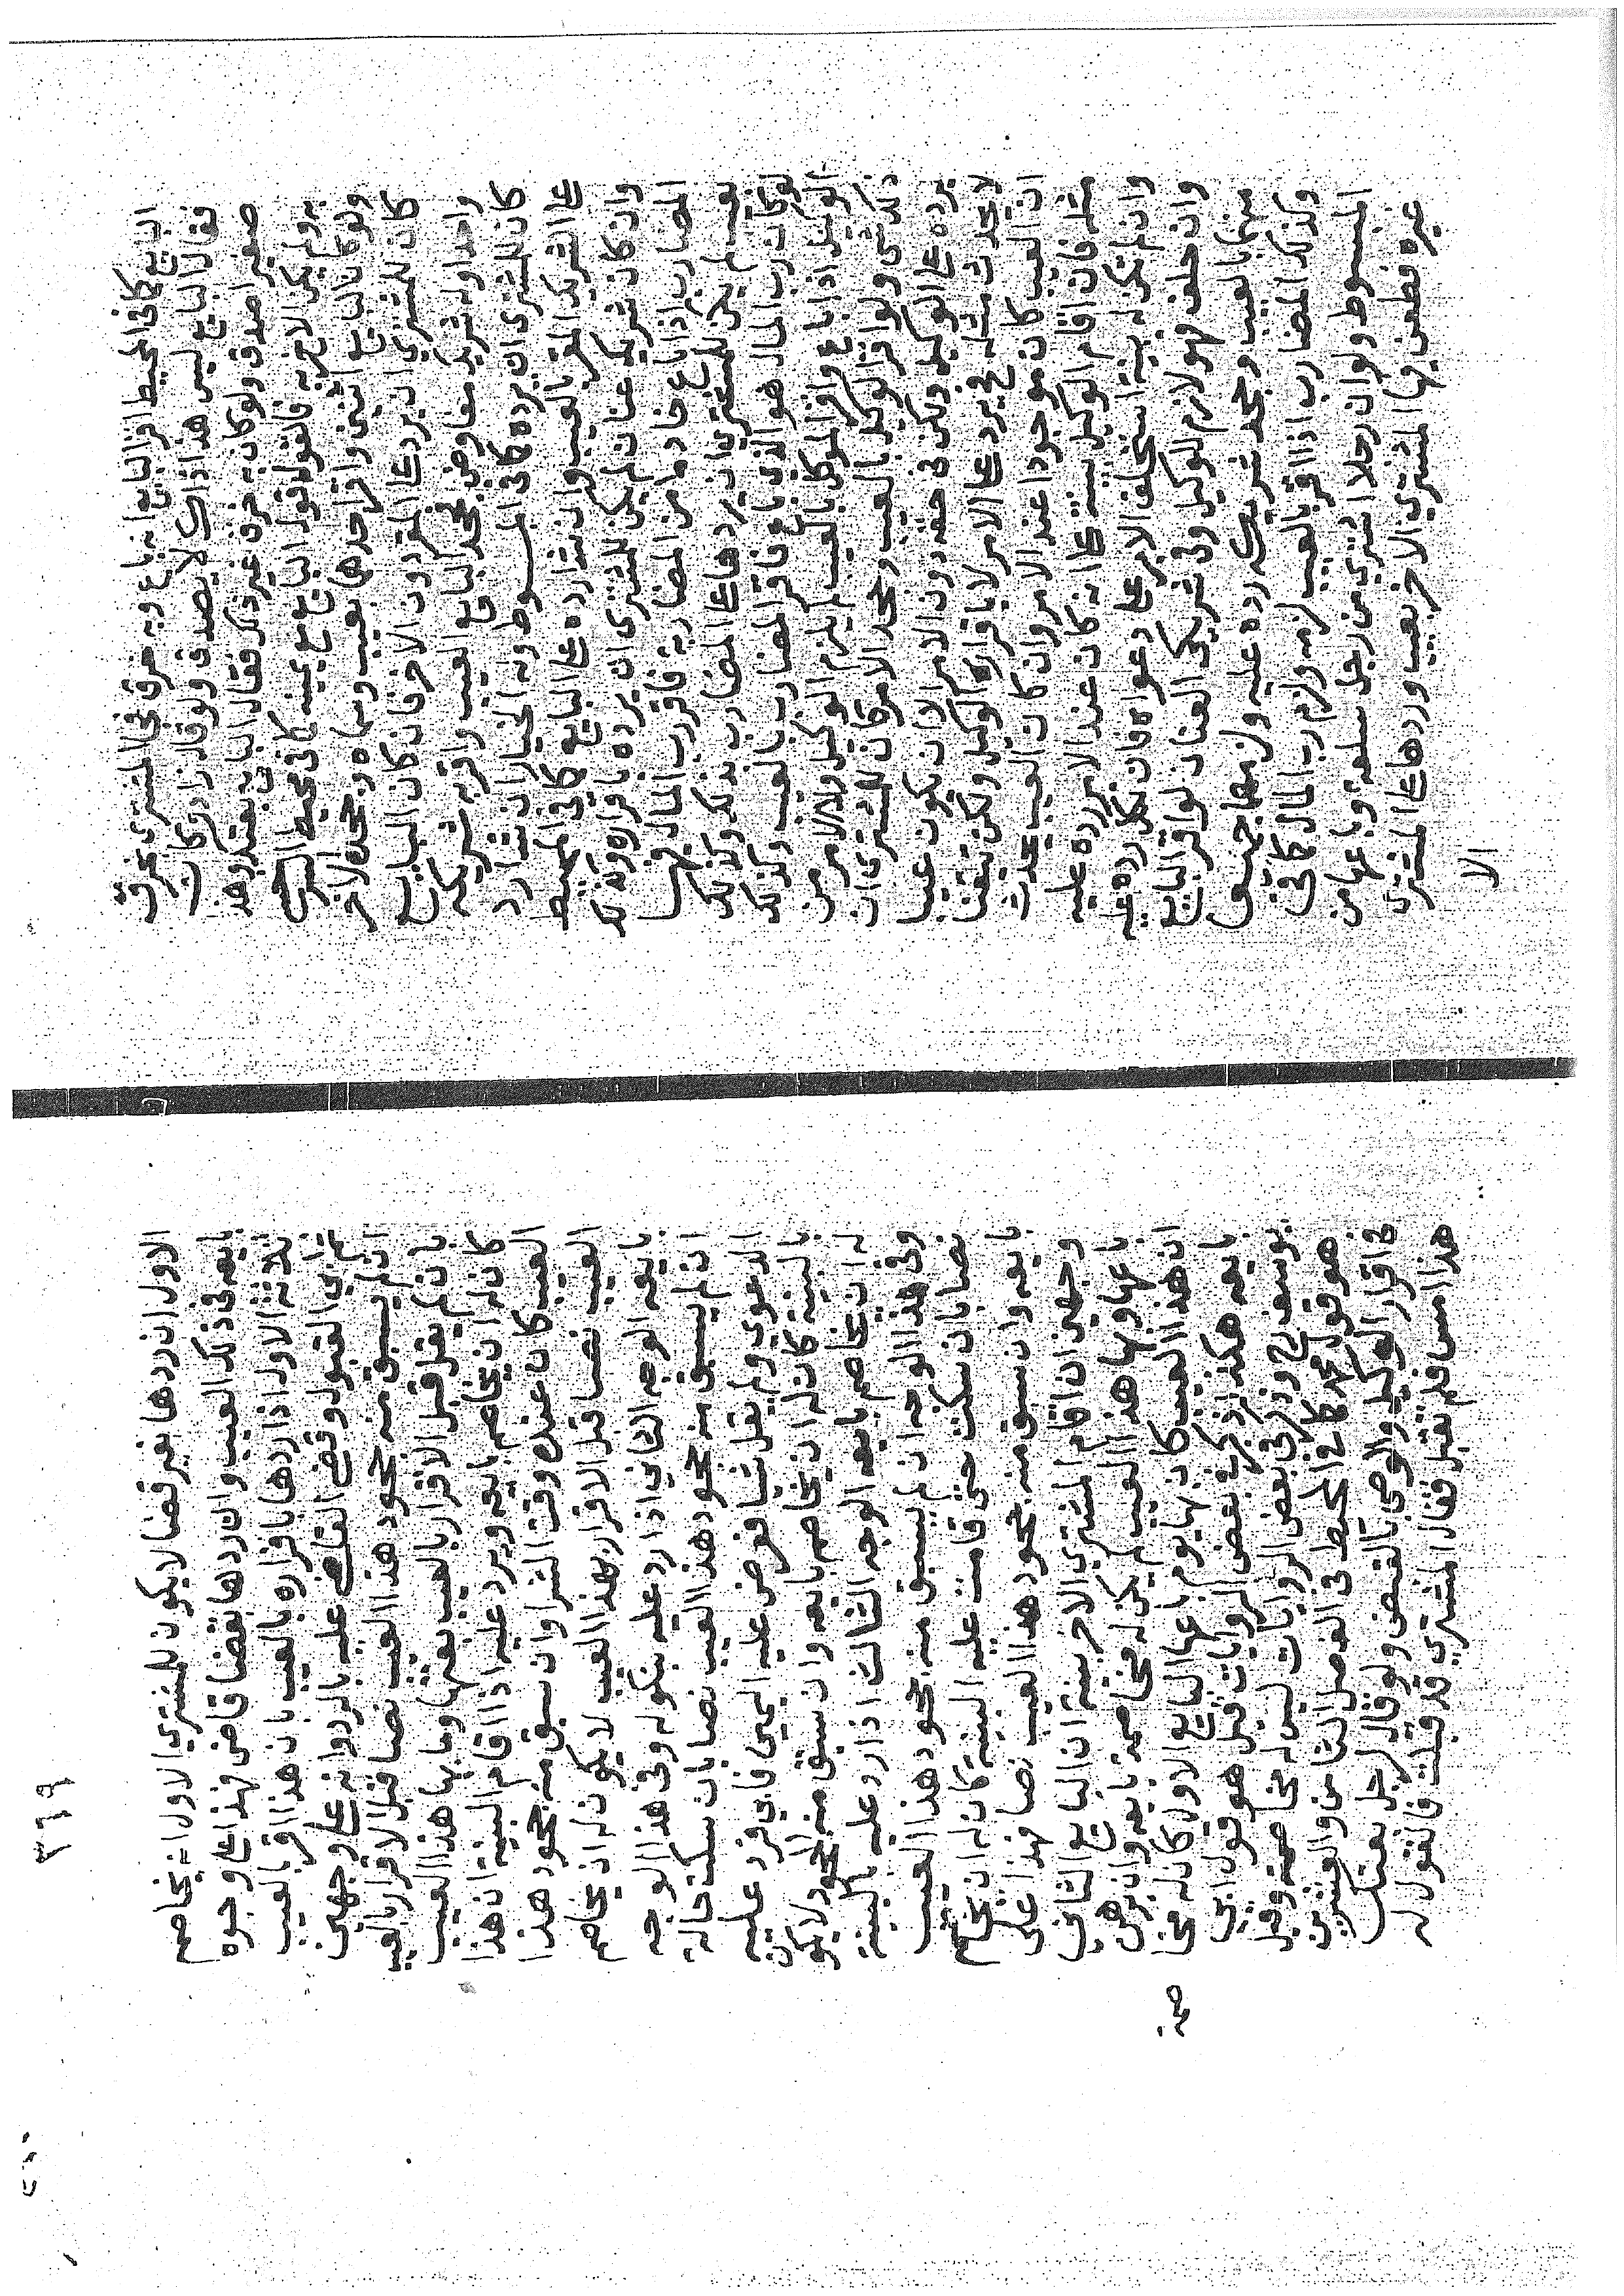 البايع كافى المحيط اقر البايع انه باع وبه خرق فجا المشترى بخرق
فقال البايع ليس هذا ذاك لا يصدق ولو قال زاد وكان
صغيرا صدق ولو كان به خرق غير ذلك فقال البايع بعته وهذ
به ولم يكن الاخر به فالقول قول البايع مع يمينه كافى محيط السرخسي
ولو كان البايع اثنين واقر احدهما بعيب وسماه وجحد الاخر
كان للمشتري ان يرد على المقر دون الاخر فان كان البايع
واحدا وله شريك مفاوض فجحد البايع العيب واقر به شريكه
كان للمشترى ان يرده كافى المبسوط وله الخيار ان شا رد
على الشريك المقر بالعيب وان شا رده على البايع كافى المحيط
وان كان شريك عنان لم يكن للمشترى ان يرده باقراره وكذلك
المضارب اذا باع خادما من المضاربة فاقر رب المال فيها
بعيب لم يكن للمشتري ان يردها على المضارب بذلك وكذلك
لو كان رب المال هو الذي باع فاقر المضارب بالعيب وكذلك
الوكيل اذا باع واقر الموكل بالعيب لم يلزم الوكيل ولا الامر من
ذلك شى ولو اقر الوكيل بالعيب وجحد الامر كان للمشترى ان
يرده على الوكيل ولكن فى حقه دون الامر الا ان يكون عيبا
لا يحدث مثله فيرد على الامر لا باقرار الوكيل ولكن تيقنا
ان العيب كان موجودا عند الامر وان كان العيب يحدث
مثله فان اقام الوكيل بينة على انه كان عند الامر رده عليه
وان لم تكن له بينة استحلف الامر على دعواه فان نكل رده عليه
وان حلف فهو لازم للوكيل وفى شريكى العنان لو اقر البايع
منهما بالعيب وجحد شريكه رده عليه ولزمهما جميعا
وكذلك المضارب اذا اقر بالعيب لزمه ولزم رب المال كافى
المبسوط ولو ان رجلا اشترى من رجل سلعة وباعها من
غيره فطعن فيها المشتري الاخر بعيب وردها على المشترى
الا
٣٦٩
الاول ان ردها بغير قضا لا يكون للمشتري الاول انه يخاصم
بايعه فى ذلك العيب وان ردها بقضا قاض فهذا على وجوه
ثلاثة الاول اذا ردها باقراره بالعيب بان هذا اقر بالعيب
ثم ابي القبول وقضى القاضى عليه بالرد وانه على وجهين
ان لم يسبق منه جحود هذا العيب نصا قبل الاقرار بالعيب
بان لم يقل قبل الاقرار بالعيب بعتها وما بها هذا العيب
كان له ان يخاصم بايعه ويرد عليه اذا اقام البينة ان هذا
العيب كان عنده وقت الشرا وان سبق منه جحود هذا
العيب نصا قبل الاقرار بهذا العيب لا يكون له ان يخاصم
بايعه الوجه الثاني اذا رد عليه بنكوله وفى هذا الوجه
ان لم يسبق منه جحود هذا العيب نصا بان سكت حالة
الدعوي ولم يقل شيا فعرض عليه اليمين فابي فرد عليه
بالبينة كان له ان يخاصم بايعه وان سبق منه الجحود لا يكون
له ان يخاصم بايعه الوجه الثالث اذا رد عليه بالبينة
وفى هذا الوجه ان لم يسبق منه جحود هذا العيب
نصا بان سكت حتى قامت عليه البينة كان له ان يخاصم
بايعه وان سبق منه جحود هذا العيب نصا فهذا على
وجهين ان اقام المشتري الاخر بينة ان البايع الثانى
باعها وبها هذا العيب لم يكن له مخاصمة بايعه وان برهن
ان هذا العيب كان بها يوم باعها البايع الاول كان له مخا
صمة
بايعه هكذا ذكر فى بعض الروايات قيل هو قول ابى
يوسف رح وذكر فى بعض الروايات ليس له مخاصمة وقيل
هو قول محمد كافى المحيط فى الفصل الثامن والعشرين
فى اقرار الوكيل والوصى بالقبض ولو قال لرجل بعتك
هذا امس فلم تقبل فقال المشتري قد قبلت فالقول له